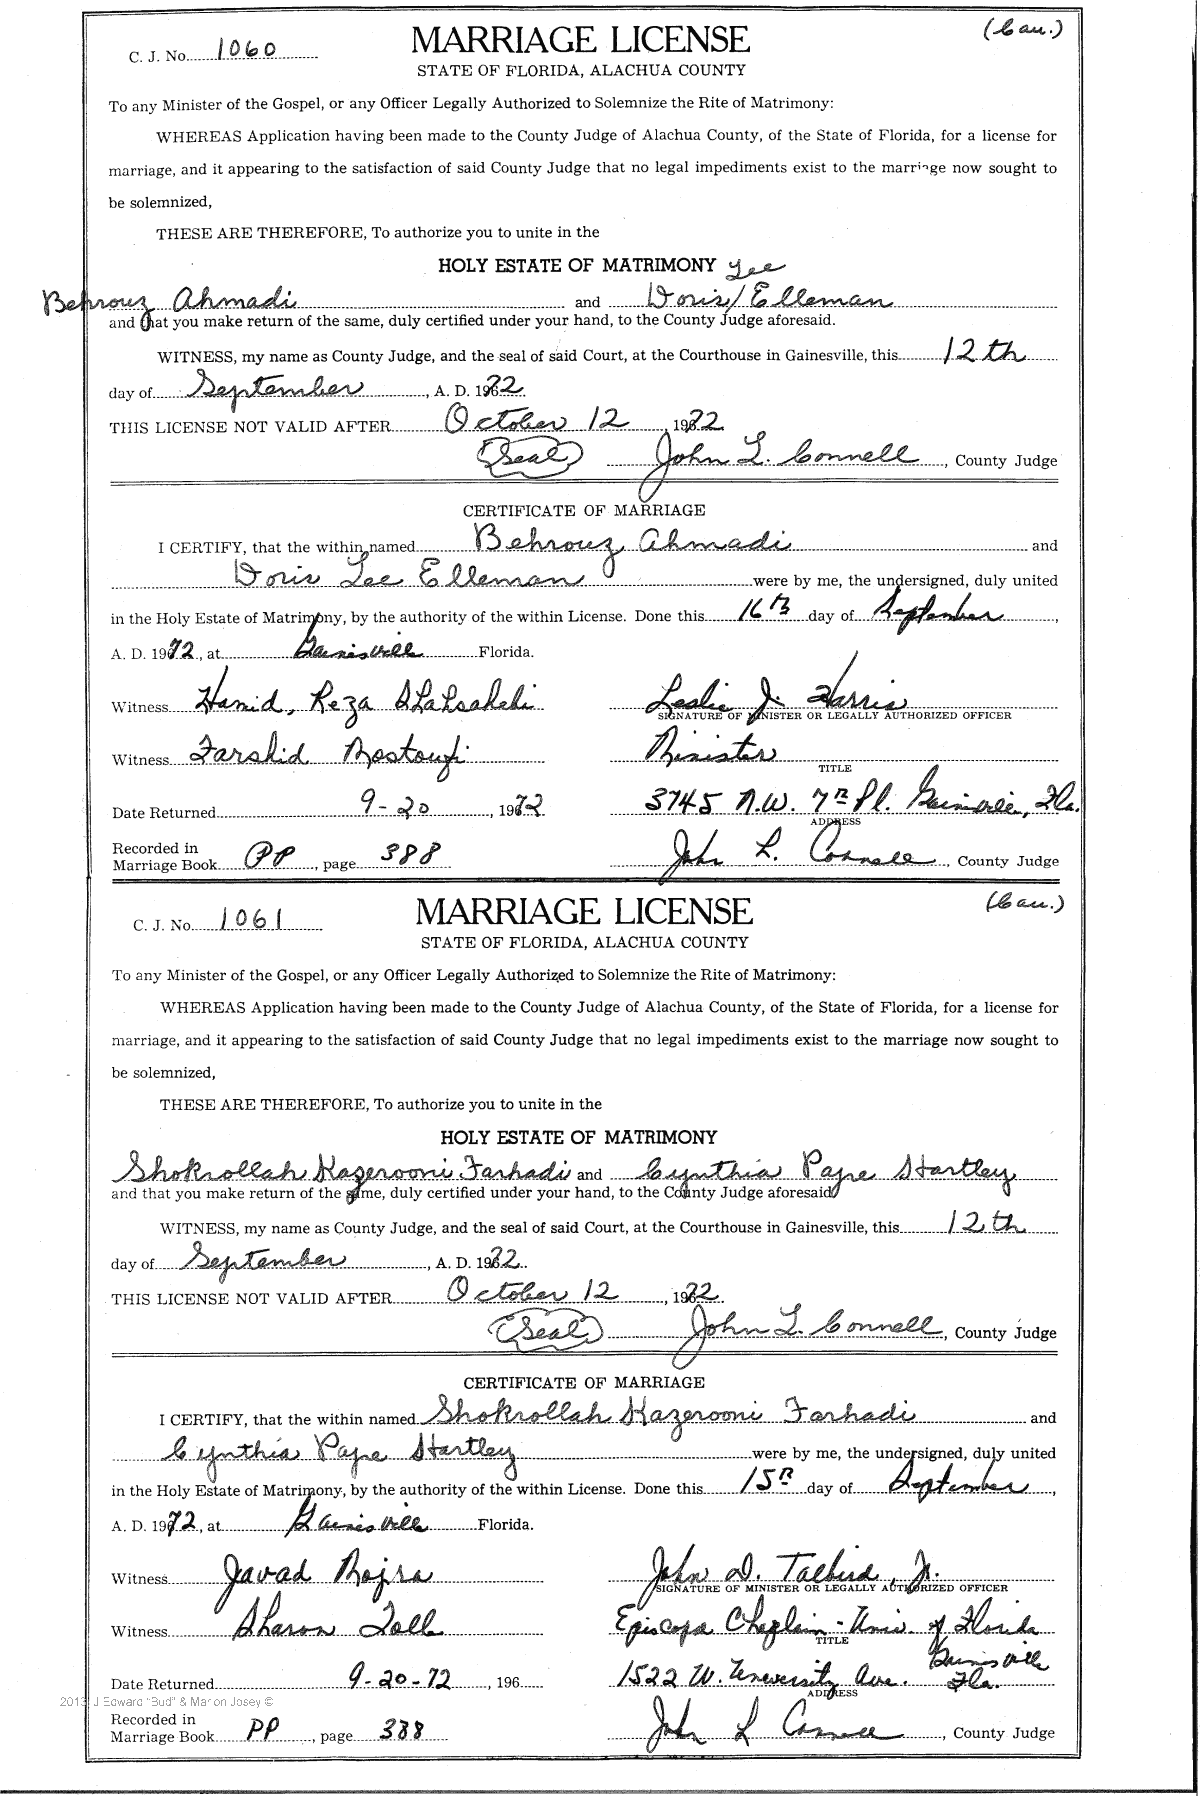 (Cau.)
C. J. No. 1060
MARRIAGE LICENSE
STATE OF FLORIDA, ALACHUA COUNTY
To any Minister of the Gospel, or any Officer Legally Authorized to Solemnize the Rite of Matrimony:
WHEREAS Application having been made to the County Judge of Alachua County, of the State of Florida, for a license for
marriage, and it appearing to the satisfaction of said County Judge that no legal impediments exist to the marriage now sought to
be solemnized,
THESE ARE THEREFORE, To authorize you to unite in the
HOLY ESTATE OF MATRIMONY
Behrouz Ahmadi and Doris / Lee Elleman
and that you make return of the same, duly certified under your hand, to the County Judge aforesaid.
WITNESS, my name as County Judge, and the seal of said Court, at the Courthouse in Gainesville, this 12th
day of September, A. D. 1972.
THIS LICENSE NOT VALID AFTER October 12, 1972.
(Seal) John L. Connell, County Judge
CERTIFICATE OF MARRIAGE
I CERTIFY, that the within named Behrouz Ahmadi and
Doris Lee Elleman were by me, the undersigned, duly united
in the Holy Estate of Matrimony, by the authority of the within License. Done this 16th day of September,
A. D. 1972, at Gainesville Florida.
Witness Hamid, Reza Shahsahebi Leslie J. Harris
SIGNATURE OF MINISTER OR LEGALLY AUTHORIZED OFFICER
Witness Farshid Rostoufi Minister
TITLE
Date Returned 9-20, 1972 3745 N.W. 7th Pl. Gainesville, Fla.
ADDRESS
Recorded in
Marriage Book PP, page 388 John L. Connell, County Judge
(Cau.)
C. J. No. 1061
MARRIAGE LICENSE
STATE OF FLORIDA, ALACHUA COUNTY
To any Minister of the Gospel, or any Officer Legally Authorized to Solemnize the Rite of Matrimony:
WHEREAS Application having been made to the County Judge of Alachua County, of the State of Florida, for a license for
marriage, and it appearing to the satisfaction of said County Judge that no legal impediments exist to the marriage now sought to
be solemnized,
THESE ARE THEREFORE, To authorize you to unite in the
HOLY ESTATE OF MATRIMONY
Shokrollah Kazerooni Farhadi and Cynthia Pape Hartley
and that you make return of the same, duly certified under your hand, to the County Judge aforesaid
WITNESS, my name as County Judge, and the seal of said Court, at the Courthouse in Gainesville, this 12th
day of September, A. D. 1972.
THIS LICENSE NOT VALID AFTER October 12, 1972.
(Seal) John L. Connell, County Judge
CERTIFICATE OF MARRIAGE
I CERTIFY, that the within named Shokrollah Kazerooni Farhadi and
Cynthia Pape Hartley were by me, the undersigned, duly united
in the Holy Estate of Matrimony, by the authority of the within License. Done this 15th day of September,
A. D. 1972, at Gainesville Florida.
Witness Javad John D. Talbird, Jr.
SIGNATURE OF MINISTER OR LEGALLY AUTHORIZED OFFICER
Witness Sharon Toll Episcopa Chaplain - Univ. of Florida
TITLE
Date Returned 9-20-72, 196 1522 W. University Ave. Gainesville Fla.
ADDRESS
2013 J Edward "Bud" & Marion Josey ©
Recorded in
Marriage Book PP, page 388 John L Connell, County Judge